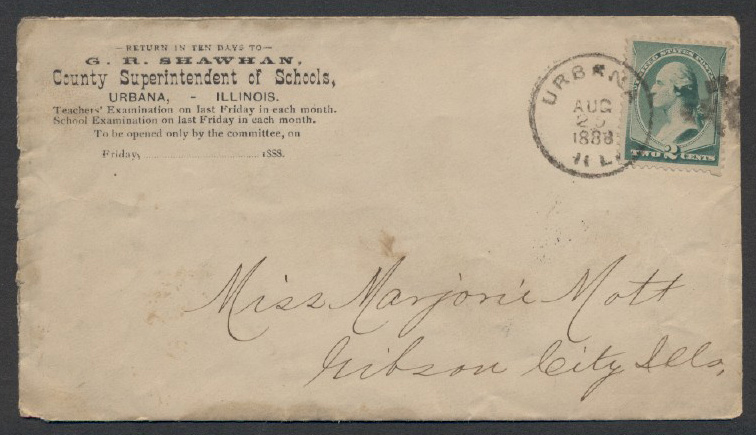 —RETURN IN TEN DAYS TO—
G. R. SHAWHAN,
County Superintendent of Schools,
URBANA, - ILLINOIS.
Teachers' Examination on last Friday in each month.
School Examination on last Friday in each month.
To be opened only by the committee, on
Friday, ........................ 1888.
URBANA
AUG
1888
ILL
UNITED STATES POSTAGE
TWO 2 CENTS
Miss Marjorie Mott
Gibson City Ills.